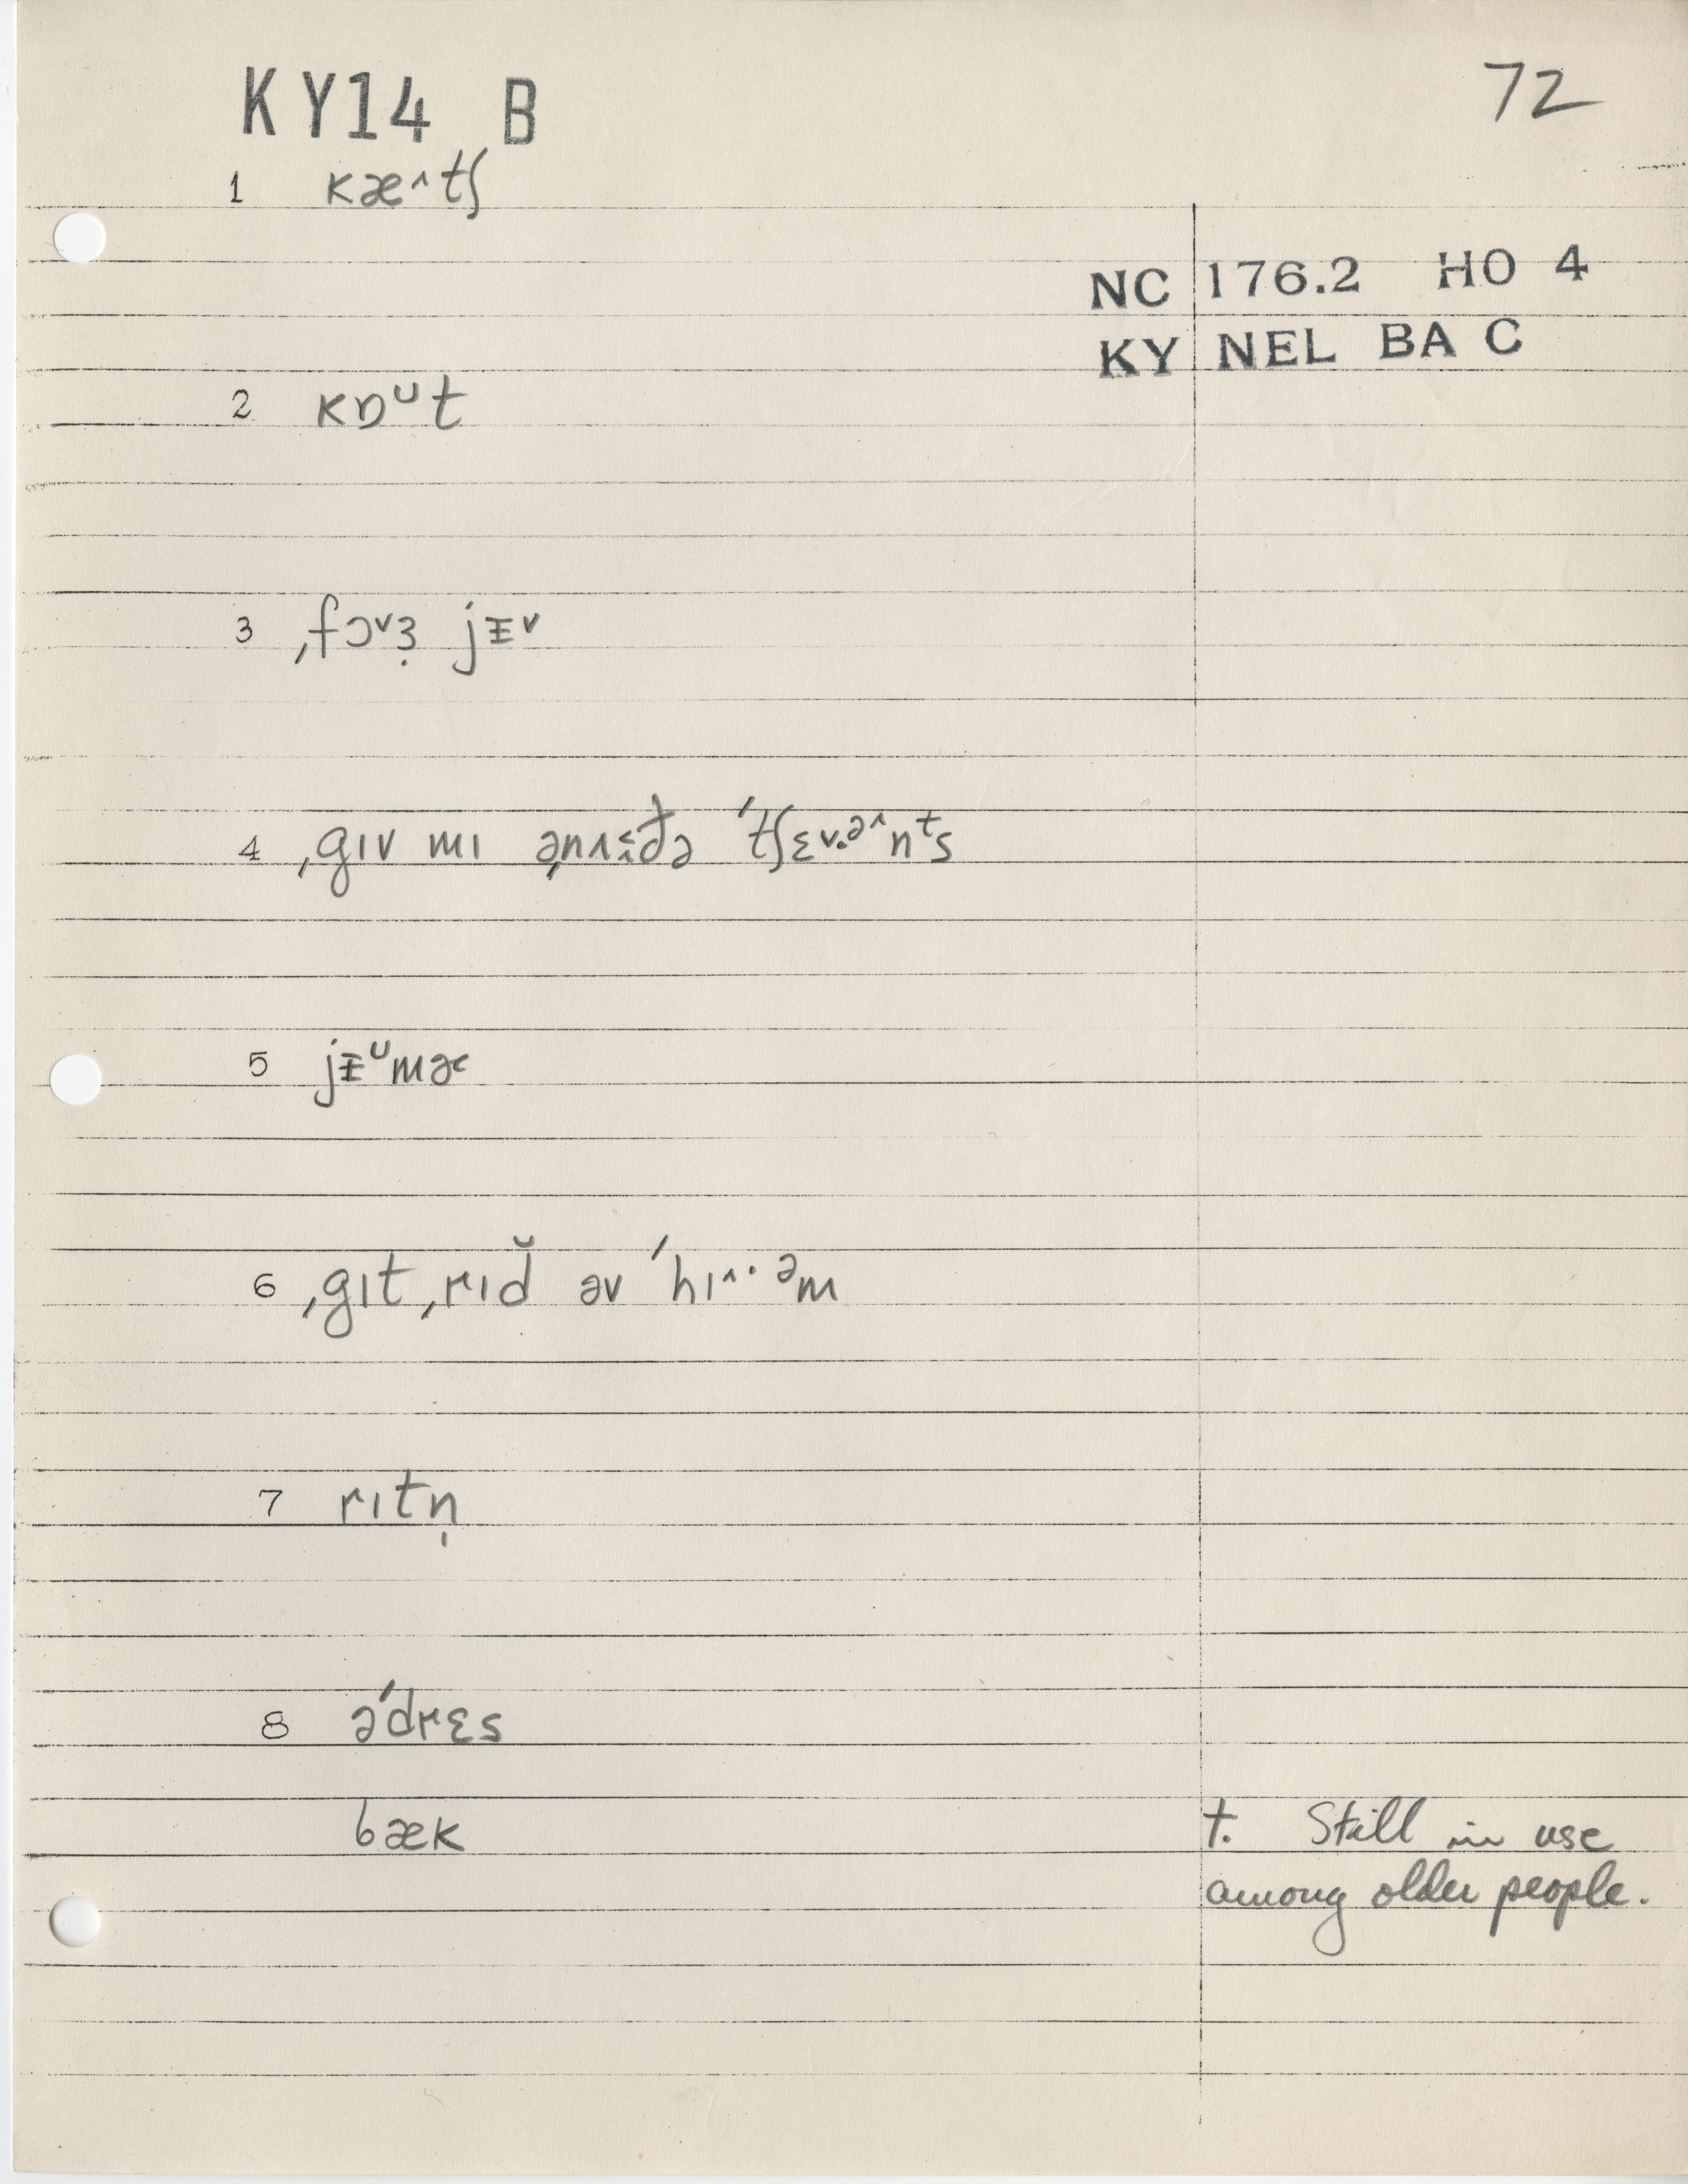 KY14 B
72
1 kæ^tʃ
NC 176.2 HO 4
KY NEL BA C
2 kɒᵁt
3 ˌfɔ˅ɝ̣ jᵻ˅
4 ˌgɪv mɪ 'tʃɛ˅·ᵊ^nᵗs
5 jᵻᵁmɚ
6 ˌgɪt ˌrɪd̆ əv ˈhɪ^·ᵊm
7 rɪtn̩
8 əˈdrɛs
bæk
t. Still in use
among older people.